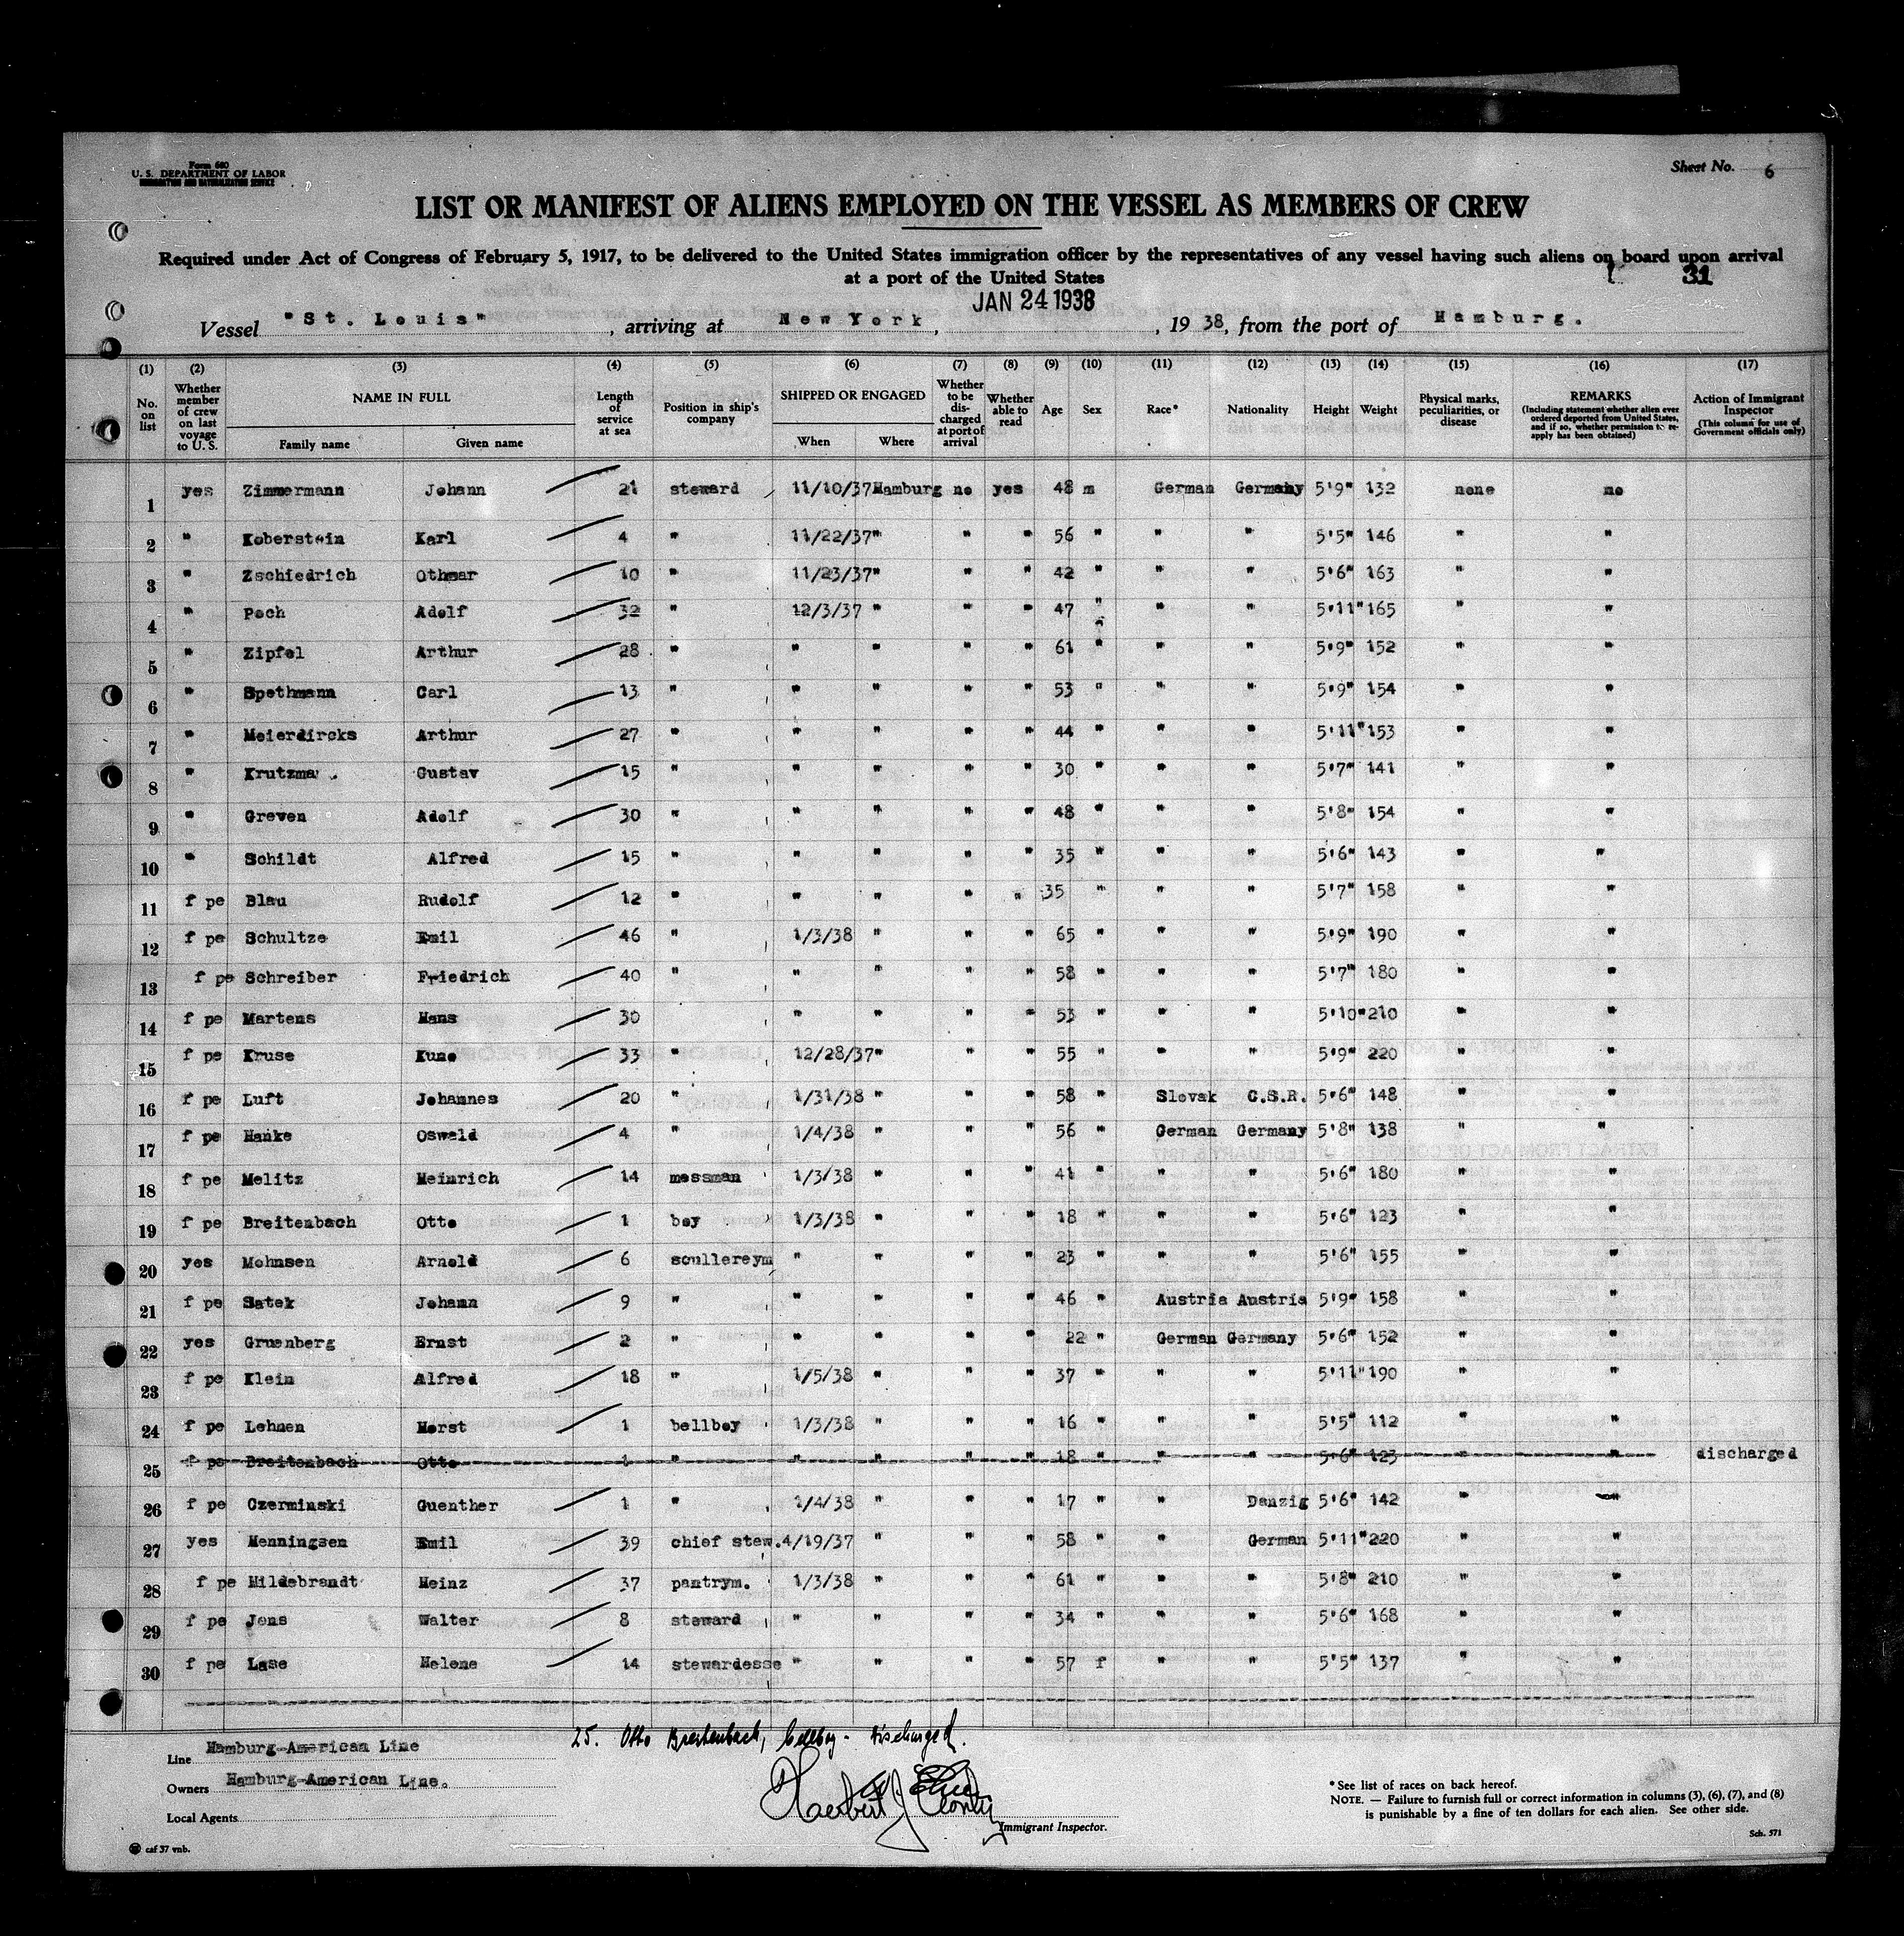 Form 680
U. S. DEPARTMENT OF LABOR
IMMIGRATION AND NATURALIZATION SERVICE
Sheet No. 6
LIST OR MANIFEST OF ALIENS EMPLOYED ON THE VESSEL AS MEMBERS OF CREW
Required under Act of Congress of February 5, 1917, to be delivered to the United States immigration officer by the representatives of any vessel having such aliens on board upon arrival
at a port of the United States
31
JAN 24 1938
Vessel "St. Louis", arriving at New York, , 1938, from the port of Hamburg.
(1) (2) (3) (4) (5) (6) (7) (8) (9) (10) (11) (12) (13) (14) (15) (16) (17)
No. on list
Whether member of crew on last voyage to U. S.
NAME IN FULL
Family name Given name
Length of service at sea
Position in ship's company
SHIPPED OR ENGAGED
When Where
Whether to be discharged at port of arrival
Whether able to read
Age
Sex
Race*
Nationality
Height
Weight
Physical marks, peculiarities, or disease
REMARKS
(Including statement whether alien ever ordered deported from United States, and if so, whether permission to reapply has been obtained)
Action of Immigrant Inspector
(This column for use of Government officials only)
1 yes Zimmermann Johann 21 steward 11/10/37 Hamburg no yes 48 m German Germany 5'9" 132 none no
2 " Koberstein Karl 4 " 11/22/37 " " " 56 " " " 5'5" 146 " "
3 " Zschiedrich Othmar 10 " 11/23/37 " " " 42 " " " 5'6" 163 " "
4 " Pech Adolf 32 " 12/3/37 " " " 47 " " " 5'11" 165 " "
5 " Zipfel Arthur 28 " " " " " 61 " " " 5'9" 152 " "
6 " Spethmann Carl 13 " " " " " 53 " " " 5'9" 154 " "
7 " Meierdircks Arthur 27 " " " " " 44 " " " 5'11" 153 " "
8 " Krutzma Gustav 15 " " " " " 30 " " " 5'7" 141 " "
9 " Greven Adolf 30 " " " " " 48 " " " 5'8" 154 " "
10 " Schildt Alfred 15 " " " " " 35 " " " 5'6" 143 " "
11 f pe Blau Rudolf 12 " " " " " 35 " " " 5'7" 158 " "
12 f pe Schultze Emil 46 " 1/3/38 " " " 65 " " " 5'9" 190 " "
13 f pe Schreiber Friedrich 40 " " " " " 58 " " " 5'7" 180 " "
14 f pe Martens Hans 30 " " " " 53 " " " 5'10" 210 " "
15 f pe Kruse Kuno 33 " 12/28/37 " " " 55 " " " 5'9" 220 " "
16 f pe Luft Johannes 20 " 1/31/38 " " " 58 " Slovak C.S.R. 5'6" 148 " "
17 f pe Hanke Oswald 4 " 1/4/38 " " " 56 " German Germany 5'8" 138 " "
18 f pe Melitz Heinrich 14 messman 1/3/38 " " " 41 " " " 5'6" 180 " "
19 f pe Breitenbach Otto 1 boy 1/3/38 " " " 18 " " " 5'6" 123 " "
20 yes Mohnsen Arnold 6 scullereym " " " " 23 " " " 5'6" 155 " "
21 f pe Satek Johann 9 " " " " " 46 " Austria Austria 5'9" 158 " "
22 yes Gruenberg Ernst 2 " " " " " 22 " German Germany 5'6" 152 " "
23 f pe Klein Alfred 18 " 1/5/38 " " " 37 " " " 5'11" 190 " "
24 f pe Lehnen Horst 1 bellboy 1/3/38 " " " 16 " " " 5'5" 112 " "
25 f pe Breitenbach Otto 1 " " " " " 18 " " " 5'6" 123 " " discharged
26 f pe Czerminski Guenther 1 " 1/4/38 " " " 17 " " Danzig 5'6" 142 " "
27 yes Henningsen Emil 39 chief stew. 4/19/37 " " " 58 " " German 5'11" 220 " "
28 f pe Hildebrandt Heinz 37 pantrym. 1/3/38 " " " 61 " " " 5'8" 210 " "
29 f pe Jens Walter 8 steward " " " " 34 " " " 5'6" 168 " "
30 f pe Lase Helene 14 stewardesse " " " " 57 f " " 5'5" 137 " "
25. Otto Breitenbach, bellboy - discharged.
Line Hamburg-American Line
Owners Hamburg-American Line.
Local Agents
Immigrant Inspector.
* See list of races on back hereof.
NOTE. — Failure to furnish full or correct information in columns (3), (6), (7), and (8)
is punishable by a fine of ten dollars for each alien. See other side.
caf 37 vnb.
Sch. 571